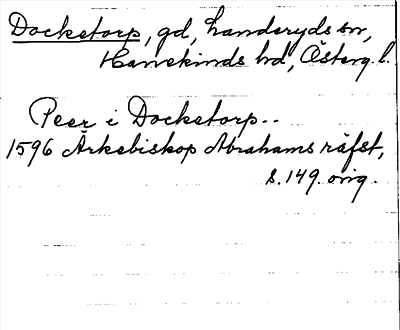 Docketorp, gd, Landeryds sn,
Hanekinds hd, Österg. l.
Peer i Docketorp..
1596 Ärkebiskop Abrahams räfst,
s. 149. orig.